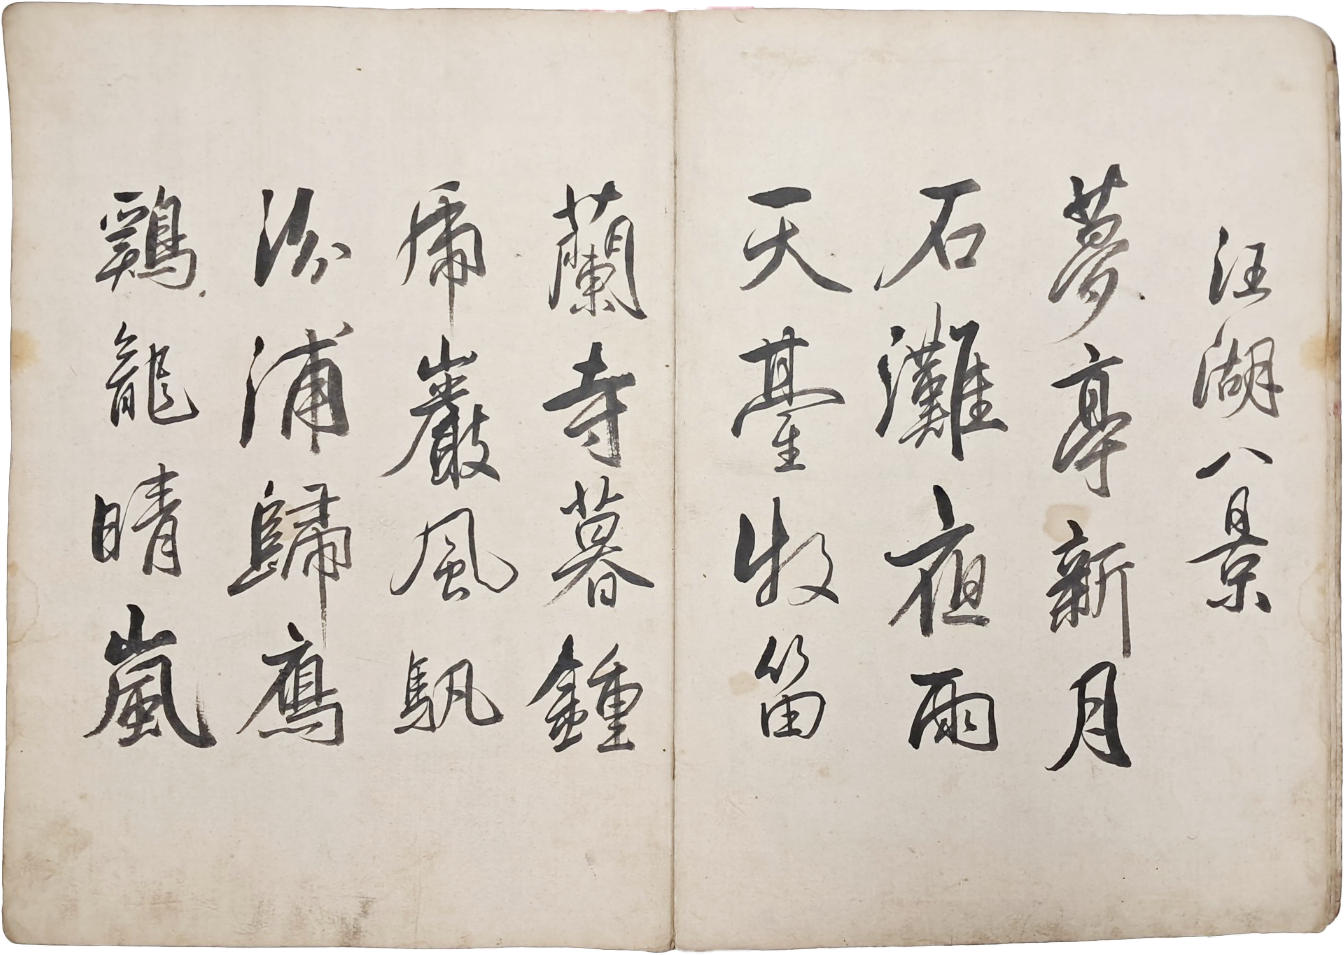 汪湖八景
夢亭新月
石灘夜雨
天臺牧笛
蘭寺暮鍾
乕巖風䭵
汾浦歸鴈
鷄龍晴嵐